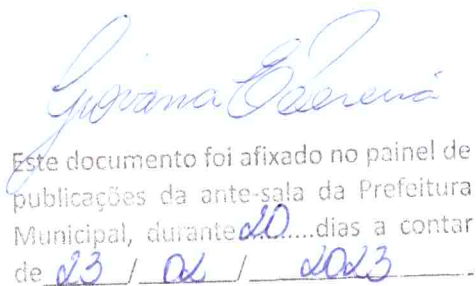 Giovana E Pereira
Este documento foi afixado no painel de
publicações da ante-sala da Prefeitura
Municipal, durante 20 dias a contar
de 23 / 02 / 2023